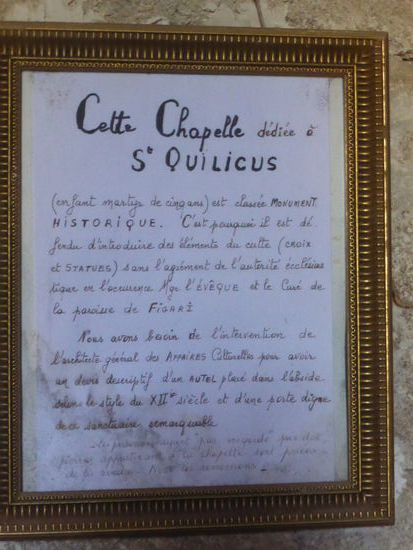 Cette Chapelle dédiée à
St QUILICUS
(enfant martyr de cinq ans) est classée MONUMENT
HISTORIQUE. C'est pourquoi il est dé-
fendu d'introduire des éléments du culte (CROIX
et STATUES) sans l'agrément de l'autorité ecclésias
tique en l'occurence Mgr l'ÉVÊQUE et le Curé de
la paroisse de FIGARI
Nous avons besoin de l'intervention de
l'architecte général des AFFAIRES Culturelles pour avoir
un devis descriptif d'un AUTEL placé dans l'abside
selon le style du XIIe siècle et d'une porte digne
de ce sanctuaire remarquable
pas
appartenant à la chapelle sont
de la Nous les